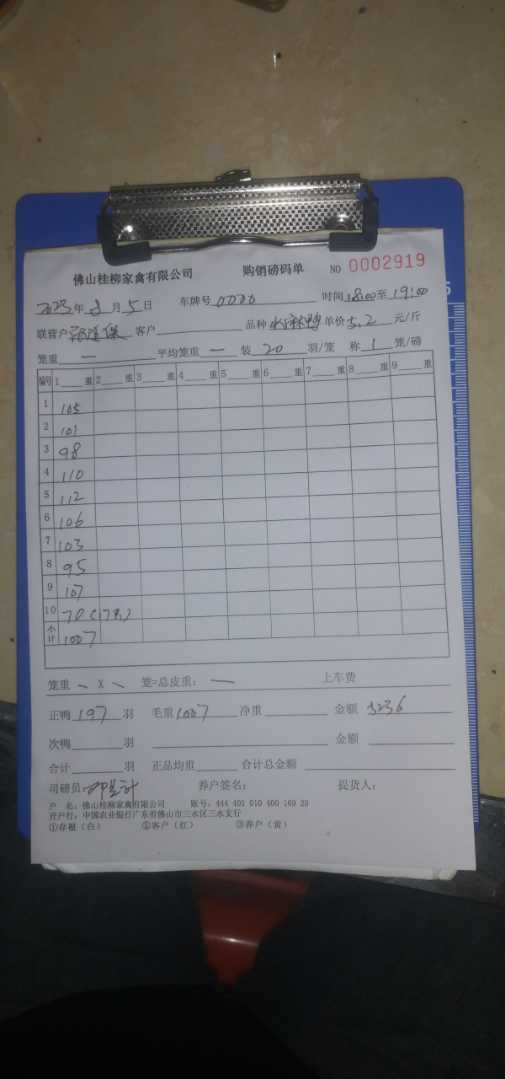 佛山桂柳家禽有限公司 购销磅码单 NO 0002919
2023年8月5日 车牌号 时间18:00至19:00
联营户 客户 品种 单价5.2元/斤
笼重 — 平均笼重 — 装 20 羽/笼 称 1 笼/磅
编号 1 重 2 重 3 重 4 重 5 重 6 重 7 重 8 重 9 重
1 105
2 101
3 98
4 110
5 112
6 106
7 103
8 95
9 107
10 70(17只)
小计 1007
笼重 — X — 笼=总皮重: — 上车费
正鸭 197 羽 毛重 1007 净重 金额 5236
次鸭 羽 金额
合计 羽 正品均重 合计总金额
司磅员: 养户签名: 提货人:
户 名:佛山桂柳家禽有限公司 账号:444 401 010 400 169 23
开户行:中国农业银行广东省佛山市三水区三水支行
①存根(白) ②客户(红) ③养户(黄)